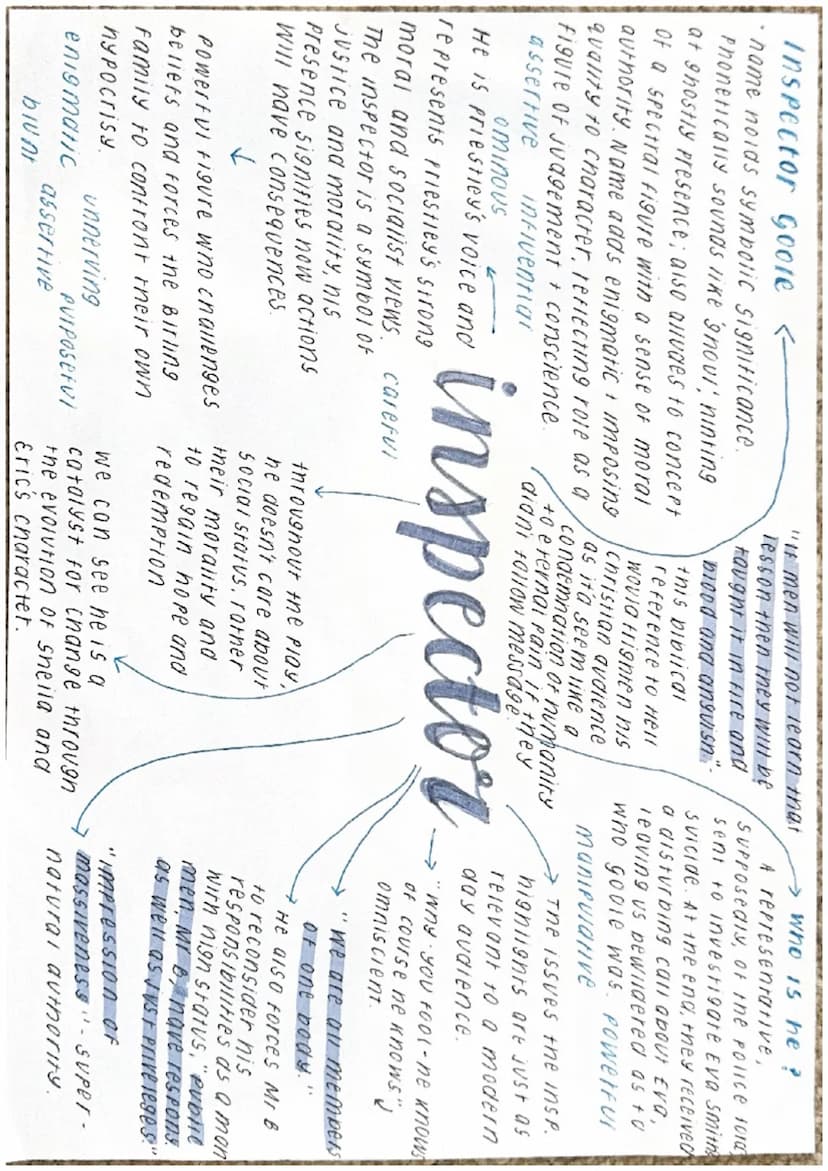 Inspector Goole
· name holds symbolic significance.
Phonetically sounds like 'ghoul', hinting
at ghostly presence; also alludes to concept
of a spectral figure with a sense of moral
authority. Name adds enigmatic + imposing
quality to character, reflecting role as a
figure of judgement + conscience.
assertive influential
ominous
He is Priestley's voice and
represents Priestley's strong
moral and socialist views.
The inspector is a symbol of
justice and morality, his
presence signifies how actions
will have consequences.
Powerful figure who challenges
beliefs and forces the Birling
family to confront their own
hypocrisy.
enigmatic unnerving purposeful
blunt assertive
careful
inspector
"If men will not learn that
lesson then they will be
taught it in fire and
blood and anguish".
this biblical
reference to Hell
would frighten his
Christian audience
as it'd seem like a
condemnation of humanity
to eternal pain if they
didn't follow message.
throughout the play,
he doesn't care about
social status, rather
their morality and
to regain hope and
redemption
we can see he is a
catalyst for change through
the evolution of Sheila and
Eric's character.
Who is he?
A representative,
supposedly, of the police
sent to investigate Eva Smith's
suicide. At the end, they received
a disturbing call about Eva,
leaving us bewildered as to
who Goole was. Powerful
manipulative
The issues the insp.
highlights are just as
relevant to a modern
day audience.
"Why - you fool - he knows
of course he knows"
omniscient.
"We are all members
of one body."
He also forces Mr B
to reconsider his
responsibilities as a man
with high status, "public
men, Mr B, have respons.
as well as just privileges."
"impression of
massiveness" - super-
natural authority.